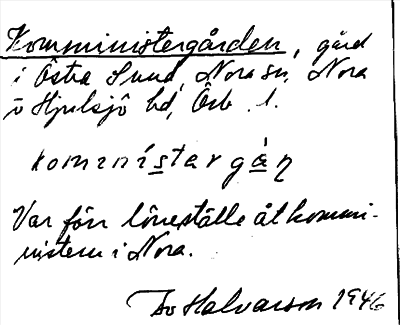 Komministergården, gård
i Östra Sund, Nora sn, Nora
o Hjulsjö bd, Örb. l.
kommıniṣtargȧ̱ṇ
Var förr löneställe åt kommi-
nistern i Nora.
Ivo Halvarson 1946